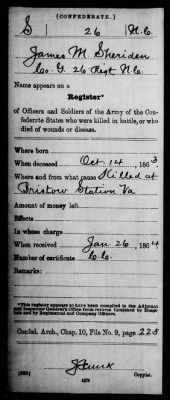 (CONFEDERATE.)
S 26 N.C.
James M Sheridan
Co. G. 26 Regt N.C.
Name appears on a
Register*
of Officers and Soldiers of the Army of the Con-
federate States who were killed in battle, or who
died of wounds or disease.
Where born
When deceased Oct. 14, 1863.
Where and from what cause Killed at
Bristow Station Va
Amount of money left
Effects
In whose charge
When received Jan 26, 1864
Number of certificate
Remarks:
*This register appears to have been compiled in the Adjutant
and Inspector General's Office from returns furnished by Hospi-
tals and by Regimental and Company Officers.
Confed. Arch., Chap. 10, File No. 9, page 228
Copyist.